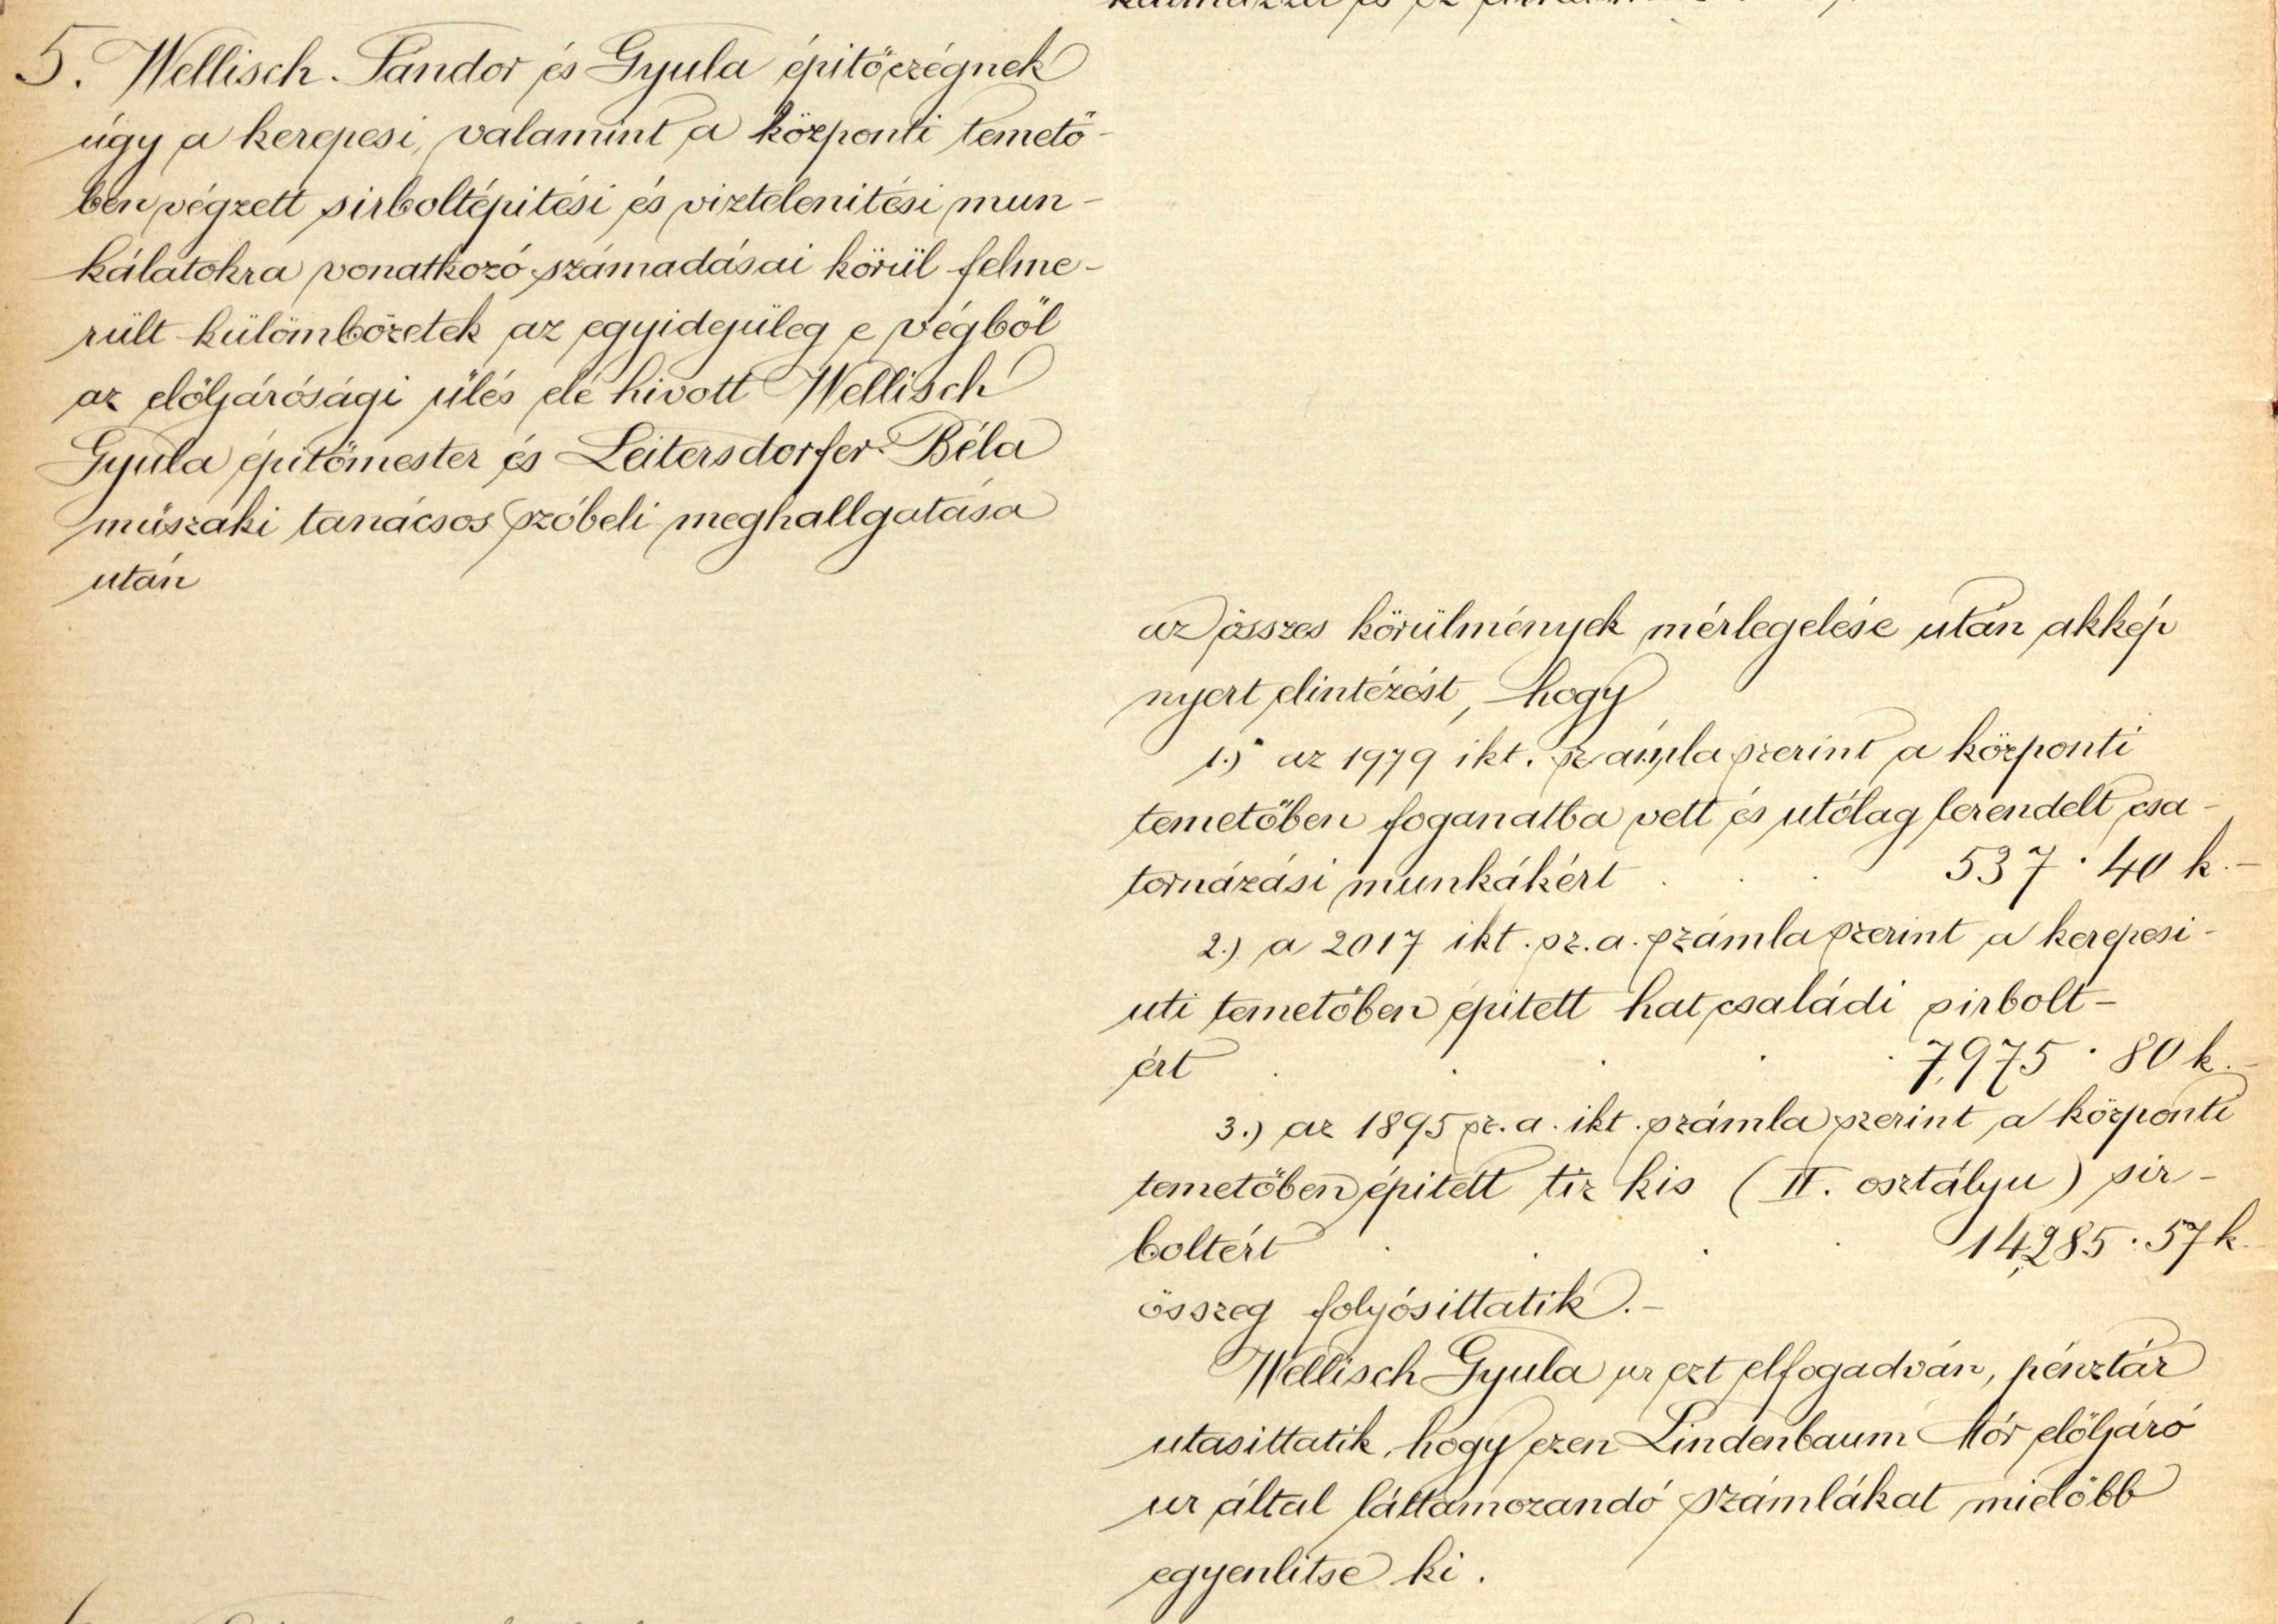 5. Wellisch Sándor és Gyula épitőczégnek
úgy a kerepesi, valamint a központi temető-
ben végzett sirboltépitési és viztelenitési mun-
kálatokra vonatkozó számadásai körül felme-
rült külömbözetek az egyidejüleg e végből
az elöljárósági ülés elé hivott Wellisch
Gyula épitőmester és Leitersdorfer Béla
műszaki tanácsos szóbeli meghallgatása
után
az összes körülmények mérlegelése után akkép
nyert elintézést, hogy
1.) az 1979 ikt. számla szerint a központi
temetőben foganatba vett és utólag lerendelt csa-
tornázási munkákért . . . 537·40 k.-
2.) a 2017 ikt. sz. a. számla szerint a kerepesi-
uti temetőben épitett hat családi sirbolt-
ért . . . . . 7,975·80 k.-
3.) az 1895 sz. a. ikt. számla szerint a központi
temetőben épitett tiz kis (II. osztályu) sir-
boltért . . . . 14,285·57 k.
összeg folyósittatik.-
Wellisch Gyula ur ezt elfogadván, pénztár
utasittatik, hogy ezen Lindenbaum Mór elöljáró
ur által láttamozandó számlákat mielőbb
egyenlitse ki.